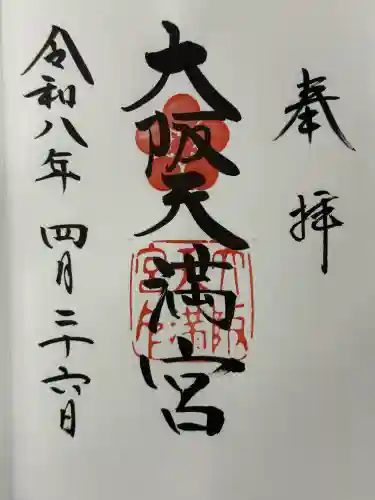 奉拝
大阪天満宮
令和八年四月二十六日